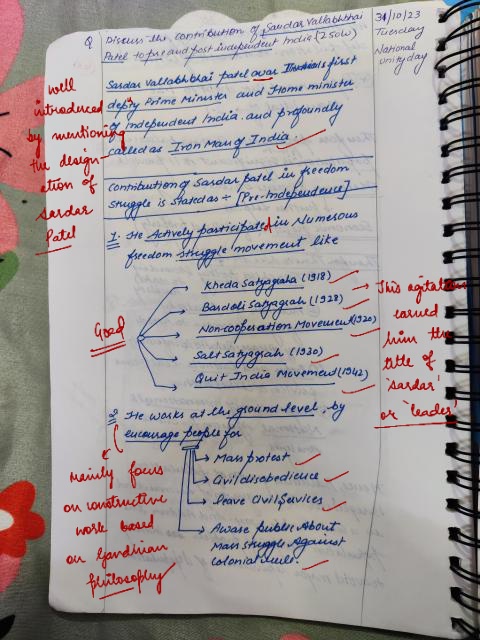 Q Discuss the contribution of Sardar Vallabhbhai
Patel to pre and post independent India (250W)
31/10/23
Tuesday
National
unity day
Sardar Vallabhbhai patel was first
depty Prime Minister and Home minister
of Independent India. and profoundly
called as Iron Man of India.
well
introduced
by mentioning
the design-
ation of
Sardar
Patel
Contribution of Sardar patel in freedom
struggle is stated as ÷ [Pre-Independence]
1. He Actively participated in Numerous
freedom struggle movement like
Kheda Satyagraha (1918)
Bardoli Satyagrah (1928)
Non-cooperation Movement (1920)
Salt Satyagrah (1930)
Quit India Movement (1942)
Good
This agitation
earned
him the
title of
'Sardar'
or 'leader'
2. He works at the ground level, by
encourage people for
Mass protest
Civil disobedience
leave Civil Services
Aware public About
Mass struggle Against
colonial rule.
Mainly focus
on constructive
work based
on Gandhian
philosophy